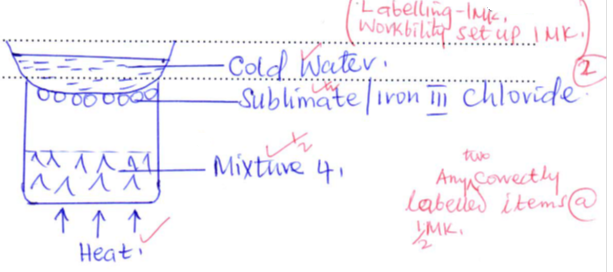 Labelling-1MK.
Workbility set up 1MK.
2
Cold Water.
Sublimate/Iron III Chloride.
½
Mixture 4.
two
Any correctly
labelled items @
½MK.
Heat.